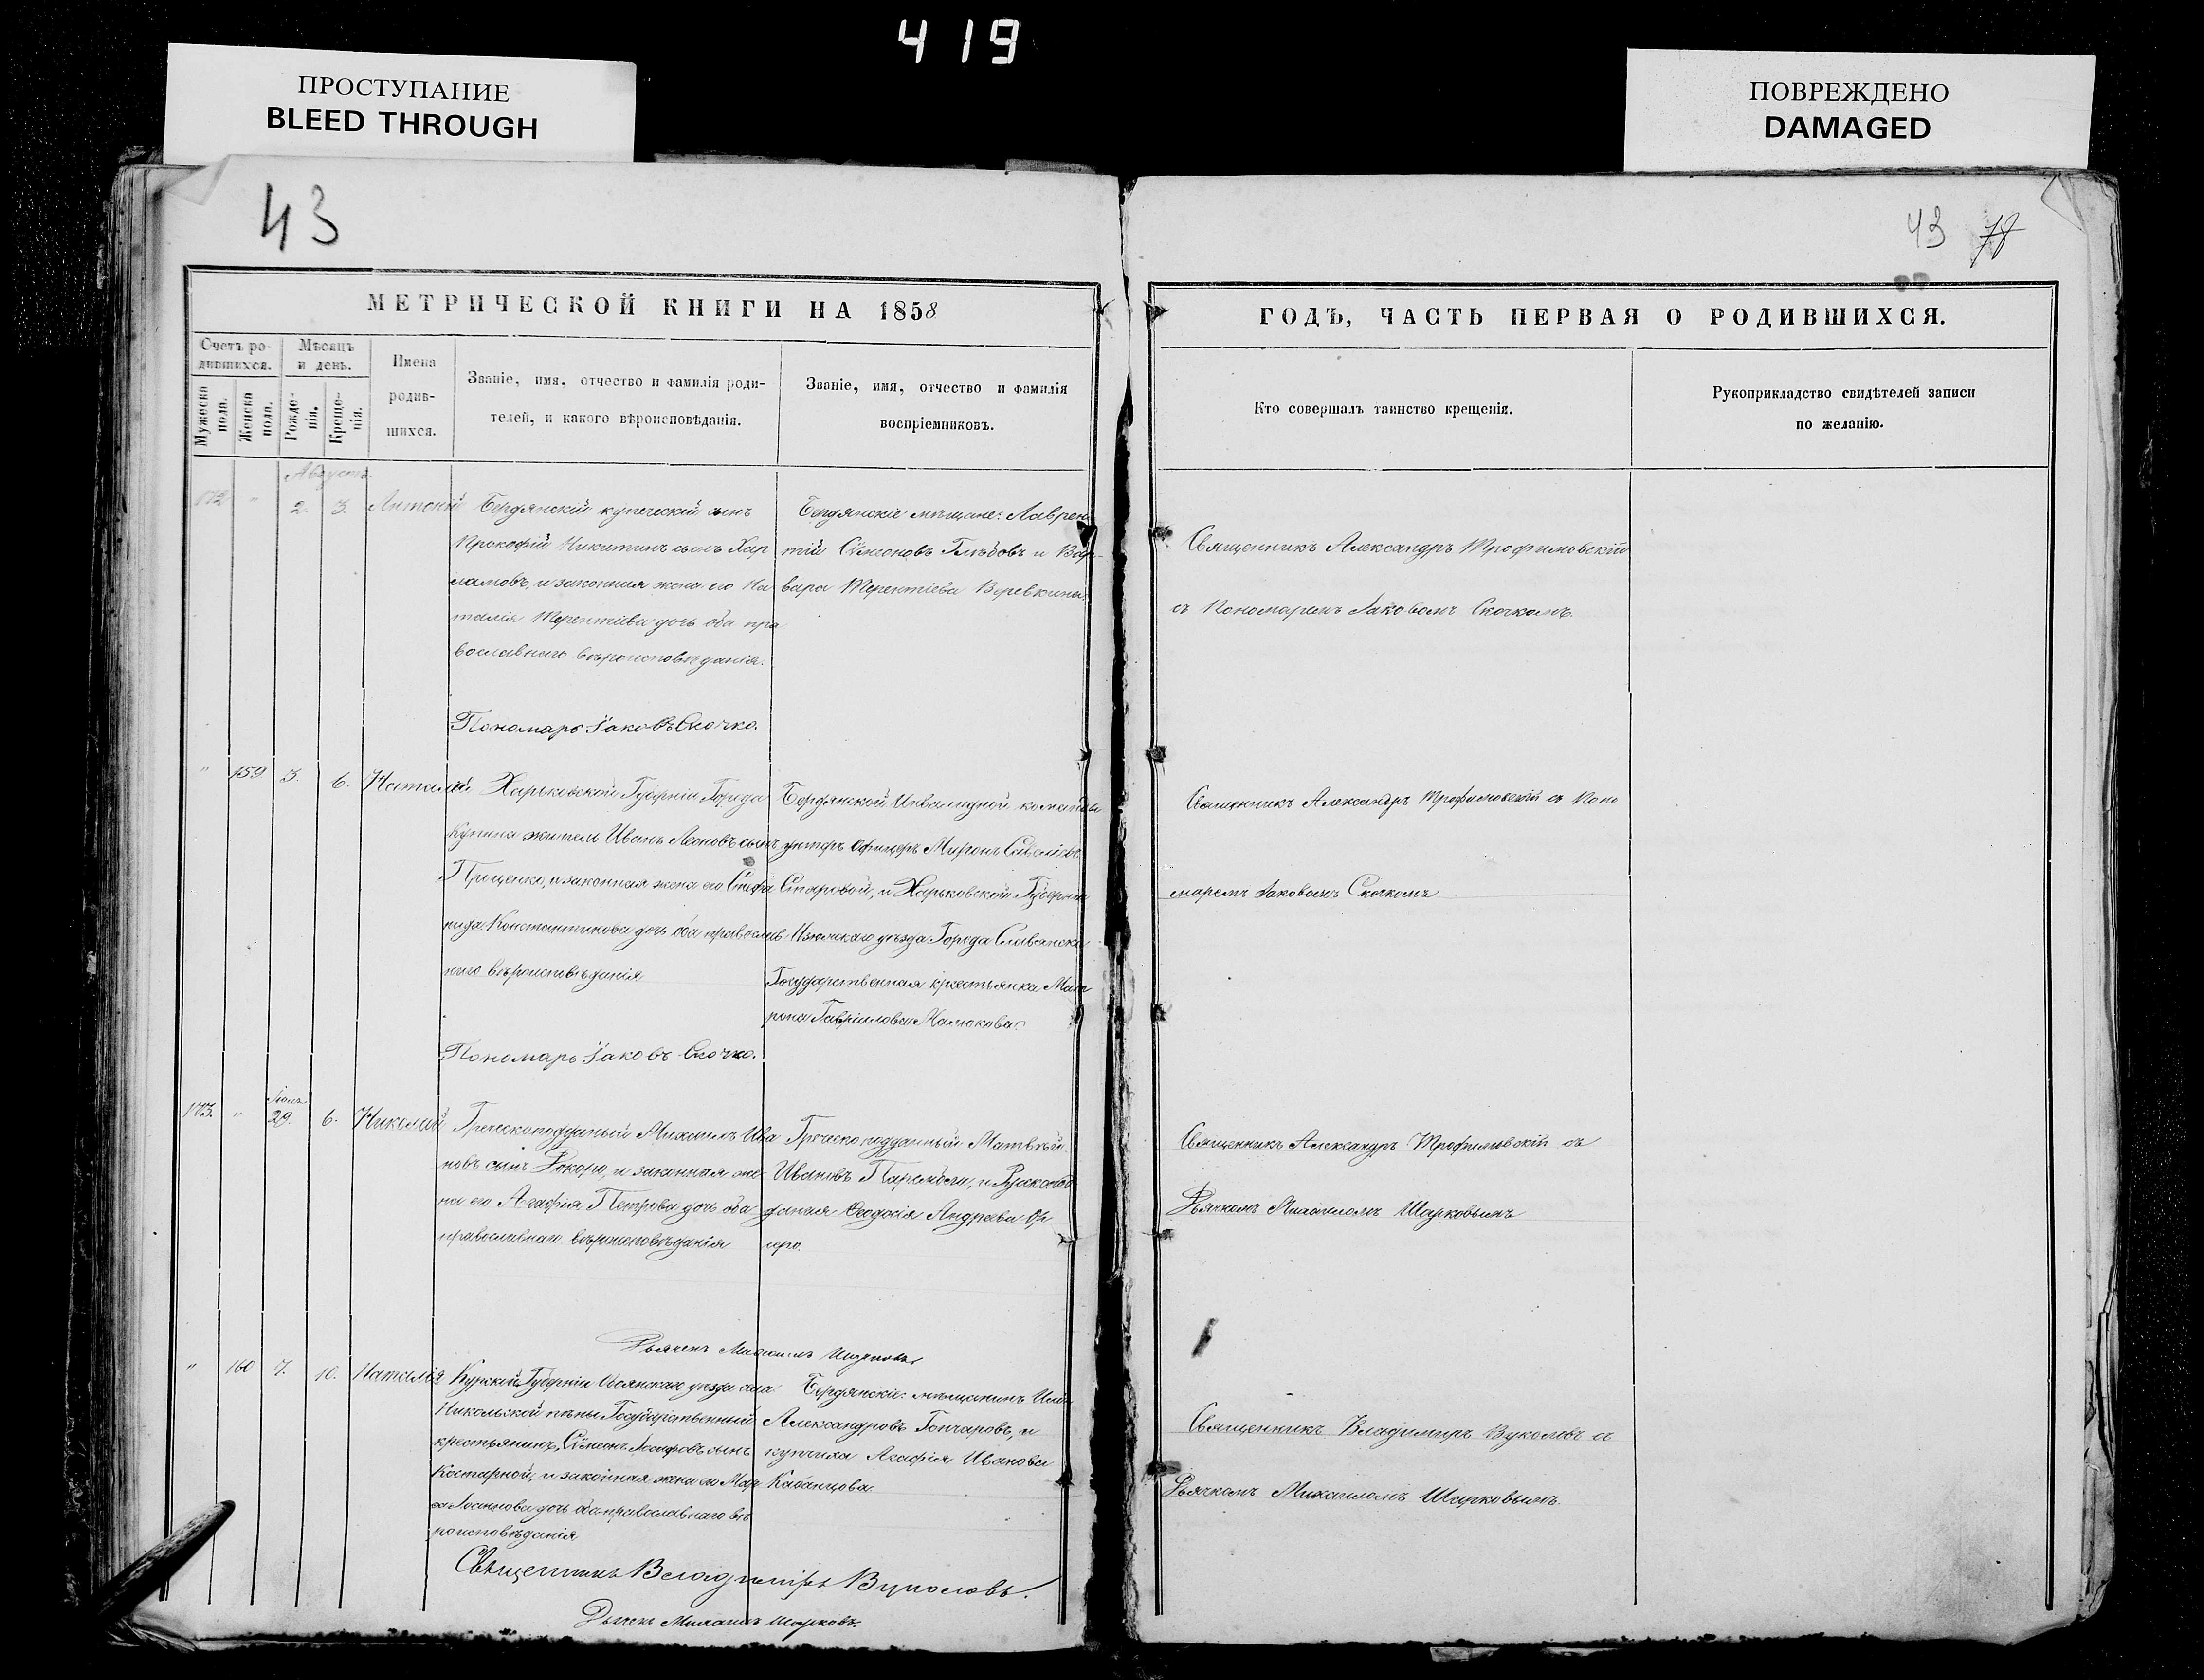 419
ПРОСТУПАНИЕ
BLEED THROUGH
ПОВРЕЖДЕНО
DAMAGED
43
43 78
МЕТРИЧЕСКОЙ КНИГИ НА 1858
ГОДЪ, ЧАСТЬ ПЕРВАЯ О РОДИВШИХСЯ.
Счетъ ро-
дившихся.
Мужеска
пола.
Женска
пола.
Мѣсяцъ
и день.
Рожде-
нія.
Креще-
нія.
Имена
родив-
шихся.
Званіе, имя, отчество и фамилія роди-
телей, и какого вѣроисповѣданія.
Званіе, имя, отчество и фамилія
воспріемниковъ.
Кто совершалъ таинство крещенія.
Рукоприкладство свидѣтелей записи
по желанію.
Августъ
172 " 2. 3. Антоній
Бердянскій купеческій сынъ
Прокофій Никитинъ сынъ Хар
ламовъ, и законная жена его На
талія Терентіева дочь оба пра
вославнаго вѣроисповѣданія.
Бердянскіе мѣщане: Лаврен
тій Сѵмеоновъ Глѣбовъ и Вар-
вара Терентіева Веревкина.
Священникъ Александръ Трофимовскій
съ Пономаремъ Іаковомъ Скочкомъ.
Пономарь Іаковъ Скочко.
" 159. 3. 6. Наталій
Харьковской Губерніи Города
житель Иванъ Леоновъ сынъ
Проценко, и законная жена его Стефа
нида Константинова дочь оба православ
наго вѣроисповѣданія
Бердянской Инвалидной команды
унтеръ офицеръ Миронъ Савеліевъ
и Харьковской Губерніи
Изюмскаго уѣзда Города Славянска
Государственная крестьянка Мат
рона Гавріилова Малюкова.
Священникъ Александръ Трофимовскій съ Поно
маремъ Іаковомъ Скочкомъ
Пономарь Іаковъ Скочко.
173. " Іюля 29. 6. Николай
Греческоподданый Михаилъ Ива
новъ сынъ и законная же
на его Агафія Петрова дочь оба
православнаго вѣроисповѣданія
Греческо подданный Матвѣй
Ивановъ и Русскопод
даная Ѳеодосія Андреева
Священникъ Александръ Трофимовскій съ
Дьячкомъ Михаиломъ Шарковымъ
Дьячекъ Михаилъ Шарковъ
" 160 7. 10. Наталія
Курской Губерніи Обоянскаго уѣзда села
Никольской Государственный
крестьянинъ, Сѵмеонъ Іосифовъ сынъ
Костарной, и законная жена его Мар
ѳа дочь оба православнаго вѣ
роисповѣданія
Бердянскіе: мѣщанинъ
Александровъ Гончаровъ, и
купчиха Агафія Иванова
Кабанцова.
Священникъ Владимиръ Вуколовъ съ
Дьячкомъ Михаиломъ Шарковымъ.
Священникъ Владиміръ Вуколовъ.
Дьячекъ Михаилъ Шарковъ.